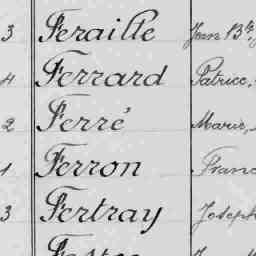 3 Feraille Jean Bte
4 Ferrard Patrice,
2 Ferré Marie,
1 Ferron Franc
3 Fertray Joseph